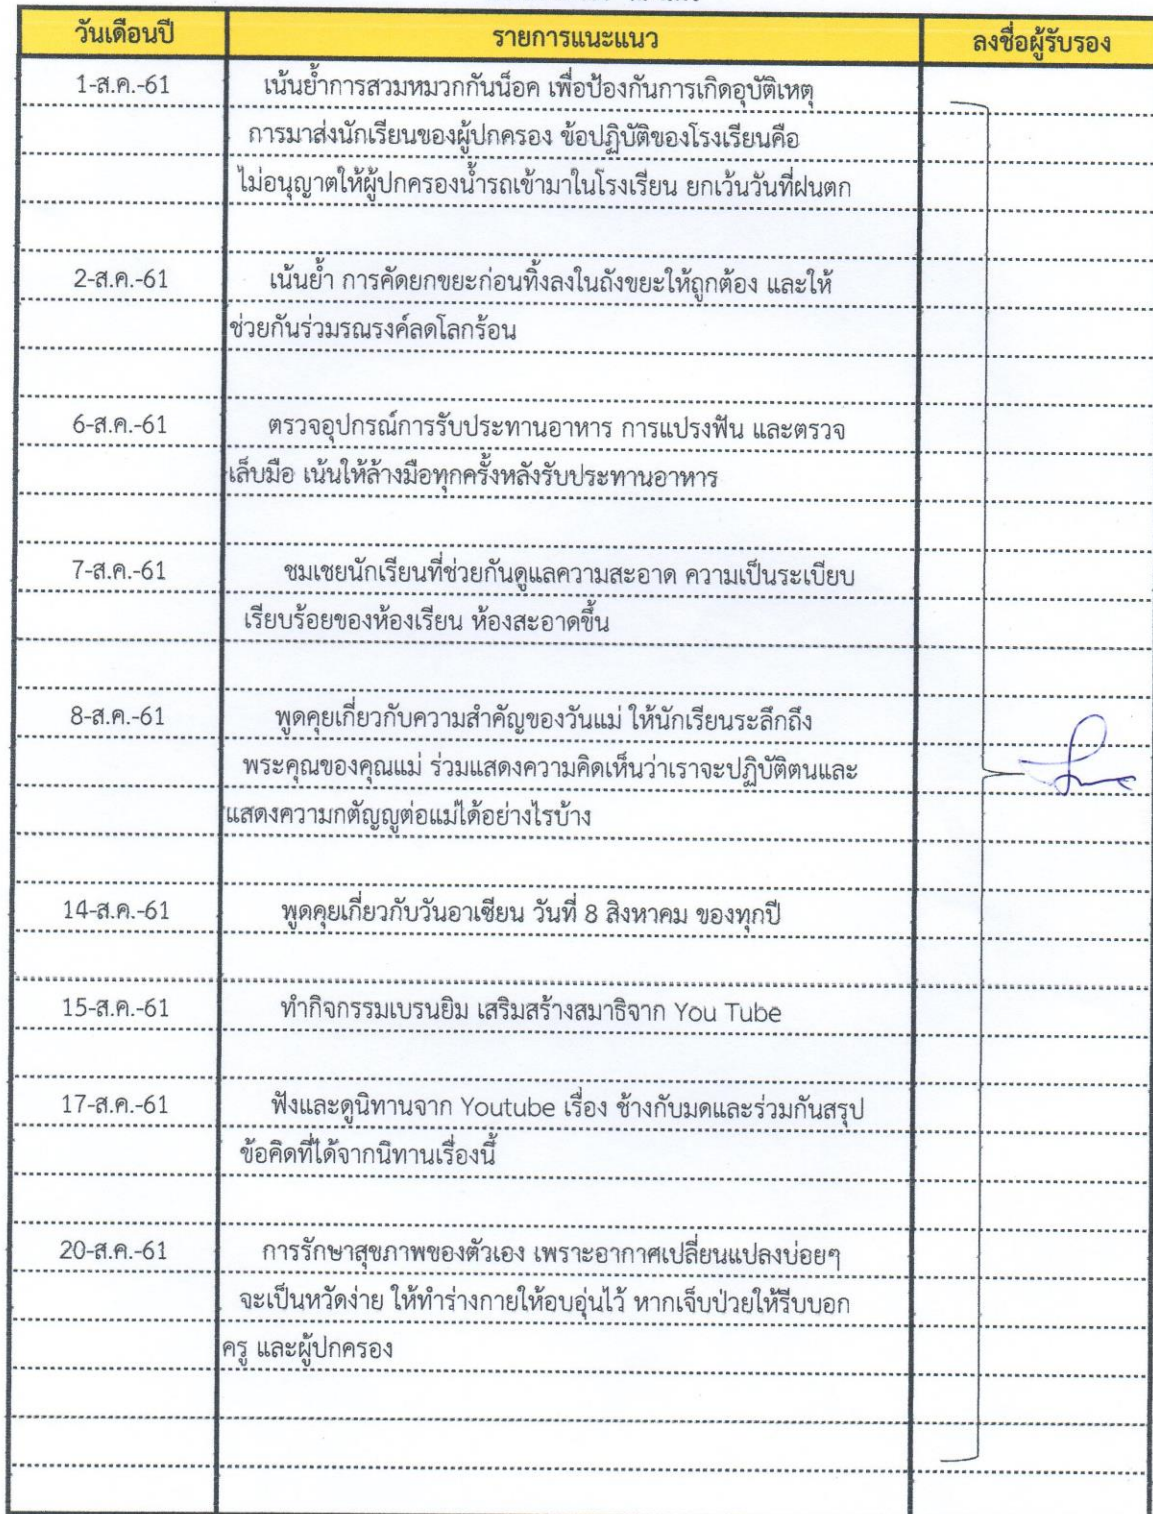 วันเดือนปี รายการแนะแนว ลงชื่อผู้รับรอง
1-ส.ค.-61 เน้นย้ำการสวมหมวกกันน็อค เพื่อป้องกันการเกิดอุบัติเหตุ
การมาส่งนักเรียนของผู้ปกครอง ข้อปฏิบัติของโรงเรียนคือ
ไม่อนุญาตให้ผู้ปกครองน้ำรถเข้ามาในโรงเรียน ยกเว้นวันที่ฝนตก
2-ส.ค.-61 เน้นย้ำ การคัดยกขยะก่อนทิ้งลงในถังขยะให้ถูกต้อง และให้
ช่วยกันร่วมรณรงค์ลดโลกร้อน
6-ส.ค.-61 ตรวจอุปกรณ์การรับประทานอาหาร การแปรงฟัน และตรวจ
เล็บมือ เน้นให้ล้างมือทุกครั้งหลังรับประทานอาหาร
7-ส.ค.-61 ชมเชยนักเรียนที่ช่วยกันดูแลความสะอาด ความเป็นระเบียบ
เรียบร้อยของห้องเรียน ห้องสะอาดขึ้น
8-ส.ค.-61 พูดคุยเกี่ยวกับความสำคัญของวันแม่ ให้นักเรียนระลึกถึง
พระคุณของคุณแม่ ร่วมแสดงความคิดเห็นว่าเราจะปฏิบัติตนและ
แสดงความกตัญญูต่อแม่ได้อย่างไรบ้าง
14-ส.ค.-61 พูดคุยเกี่ยวกับวันอาเซียน วันที่ 8 สิงหาคม ของทุกปี
15-ส.ค.-61 ทำกิจกรรมเบรนยิม เสริมสร้างสมาธิจาก You Tube
17-ส.ค.-61 ฟังและดูนิทานจาก Youtube เรื่อง ช้างกับมดและร่วมกันสรุป
ข้อคิดที่ได้จากนิทานเรื่องนี้
20-ส.ค.-61 การรักษาสุขภาพของตัวเอง เพราะอากาศเปลี่ยนแปลงบ่อยๆ
จะเป็นหวัดง่าย ให้ทำร่างกายให้อบอุ่นไว้ หากเจ็บป่วยให้รีบบอก
ครู และผู้ปกครอง